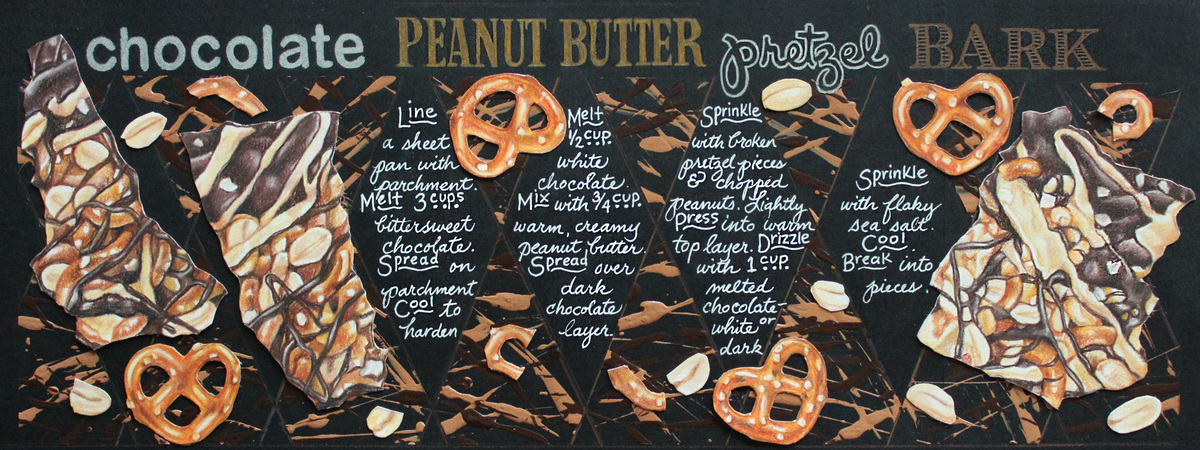 chocolate PEANUT BUTTER pretzel BARK
Line
a sheet
pan with
parchment.
Melt 3 cups
bittersweet
chocolate.
Spread on
parchment
Cool to
harden
Melt
1/2 cup
white
chocolate.
Mix with 3/4 cup
warm, creamy
peanut butter.
Spread over
dark
chocolate
layer.
Sprinkle
with broken
pretzel pieces
& chopped
peanuts. Lightly
Press into warm
top layer. Drizzle
with 1 cup
melted
chocolate-
white or
dark
Sprinkle
with flaky
sea salt.
Cool.
Break into
pieces.